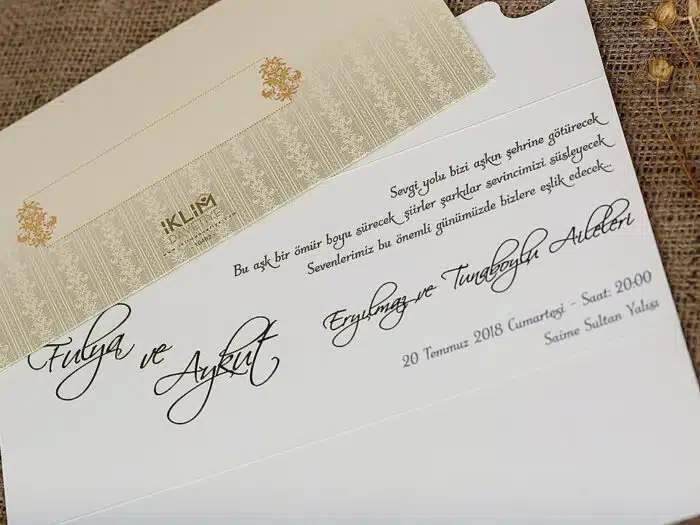 İKLİM
DAVETİYE
Sevgi yolu bizi aşkın şehrine götürecek
Bu aşk bir ömür boyu sürecek şiirler şarkılar sevincimizi süsleyecek
Sevenlerimiz bu önemli günümüzde bizlere eşlik edecek...
Fulya ve Aykut
Eryılmaz ve Tunaboylu Aileleri
20 Temmuz 2018 Cumartesi - Saat: 20:00
Saime Sultan Yalısı